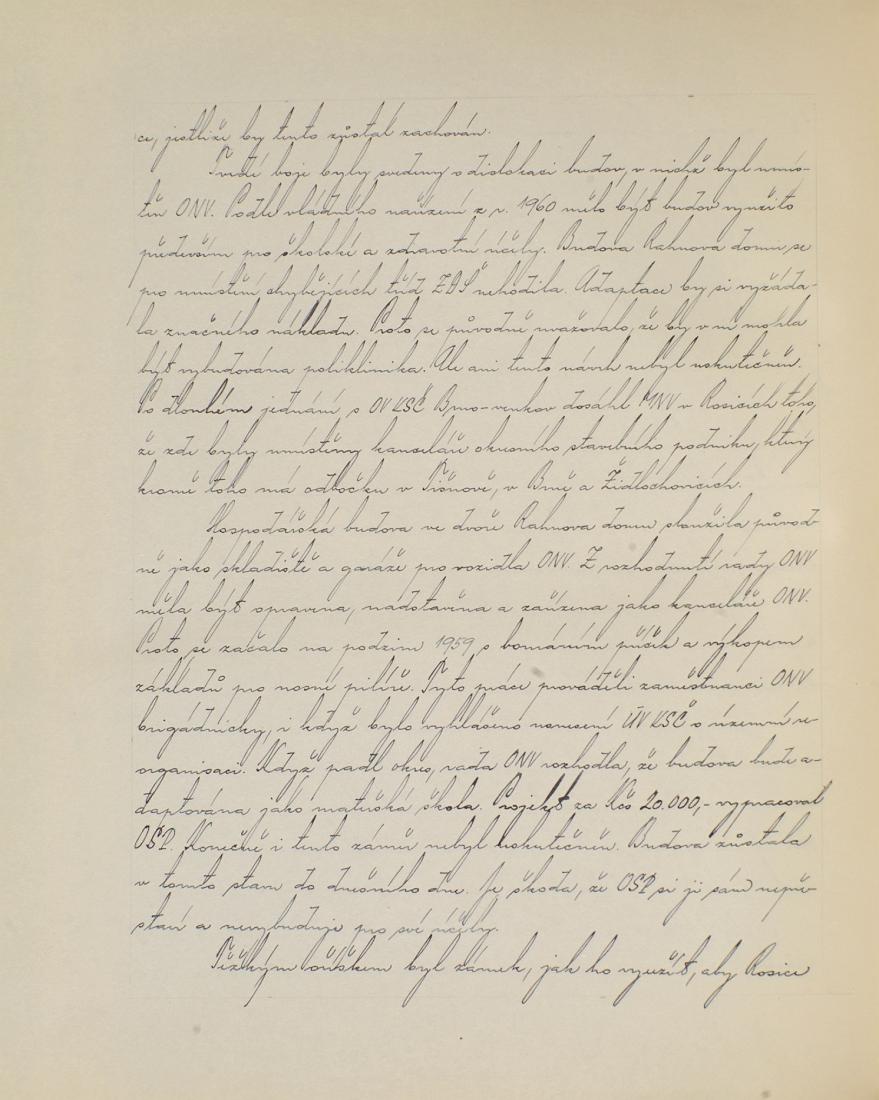 ce, jestliže by tento zůstal zachován.
Tvrdé boje byly svedeny o dislokaci budov, v nichž byl umís-
těn ONV. Podle vládního nařízení z r. 1960 mělo být budov využito
především pro školské a zdravotní účely. Budova Rahnova domu se
pro umístění chybějících tříd ZDŠ nehodila. Adaptace by si vyžáda-
la značného nákladu. Proto se původně uvažovalo, že by v ní mohla
být vybudována poliklinika. Ale ani tento návrh nebyl uskutečněn.
Po dlouhém jednání s OV KSČ Brno-venkov dosáhl MNV v Rosicích toho,
že zde byly umístěny kanceláře okresního stavebního podniku, který
kromě toho má odbočku v Tišnově, v Brně a Židlochovicích.
Hospodářská budova ve dvoře Rahnova domu sloužila původ-
ně jako skladiště a garáže pro vozidla ONV. Z rozhodnutí rady ONV
měla být opravena, nadstavěna a zařízena jako kanceláře ONV.
Proto se začalo na podzim 1959 s bouráním příček a výkopem
základů pro nosné pilíře. Tyto práce prováděli zaměstnanci ONV
brigádnicky, i když bylo vyhlášeno usnesení ÚV KSČ o územní re-
organisaci. Když padl okres, rada ONV rozhodla, že budova bude a-
daptována jako mateřská škola. Projekt za Kčs 20.000,- vypracoval
OSP. Konečně i tento záměr nebyl uskutečněn. Budova zůstala
v tomto stavu do dnešního dne. Je škoda, že OSP si ji sám nepří-
staví a nevybuduje pro své účely.
Těžkým oříškem byl zámek, jak ho využít, aby Rosice